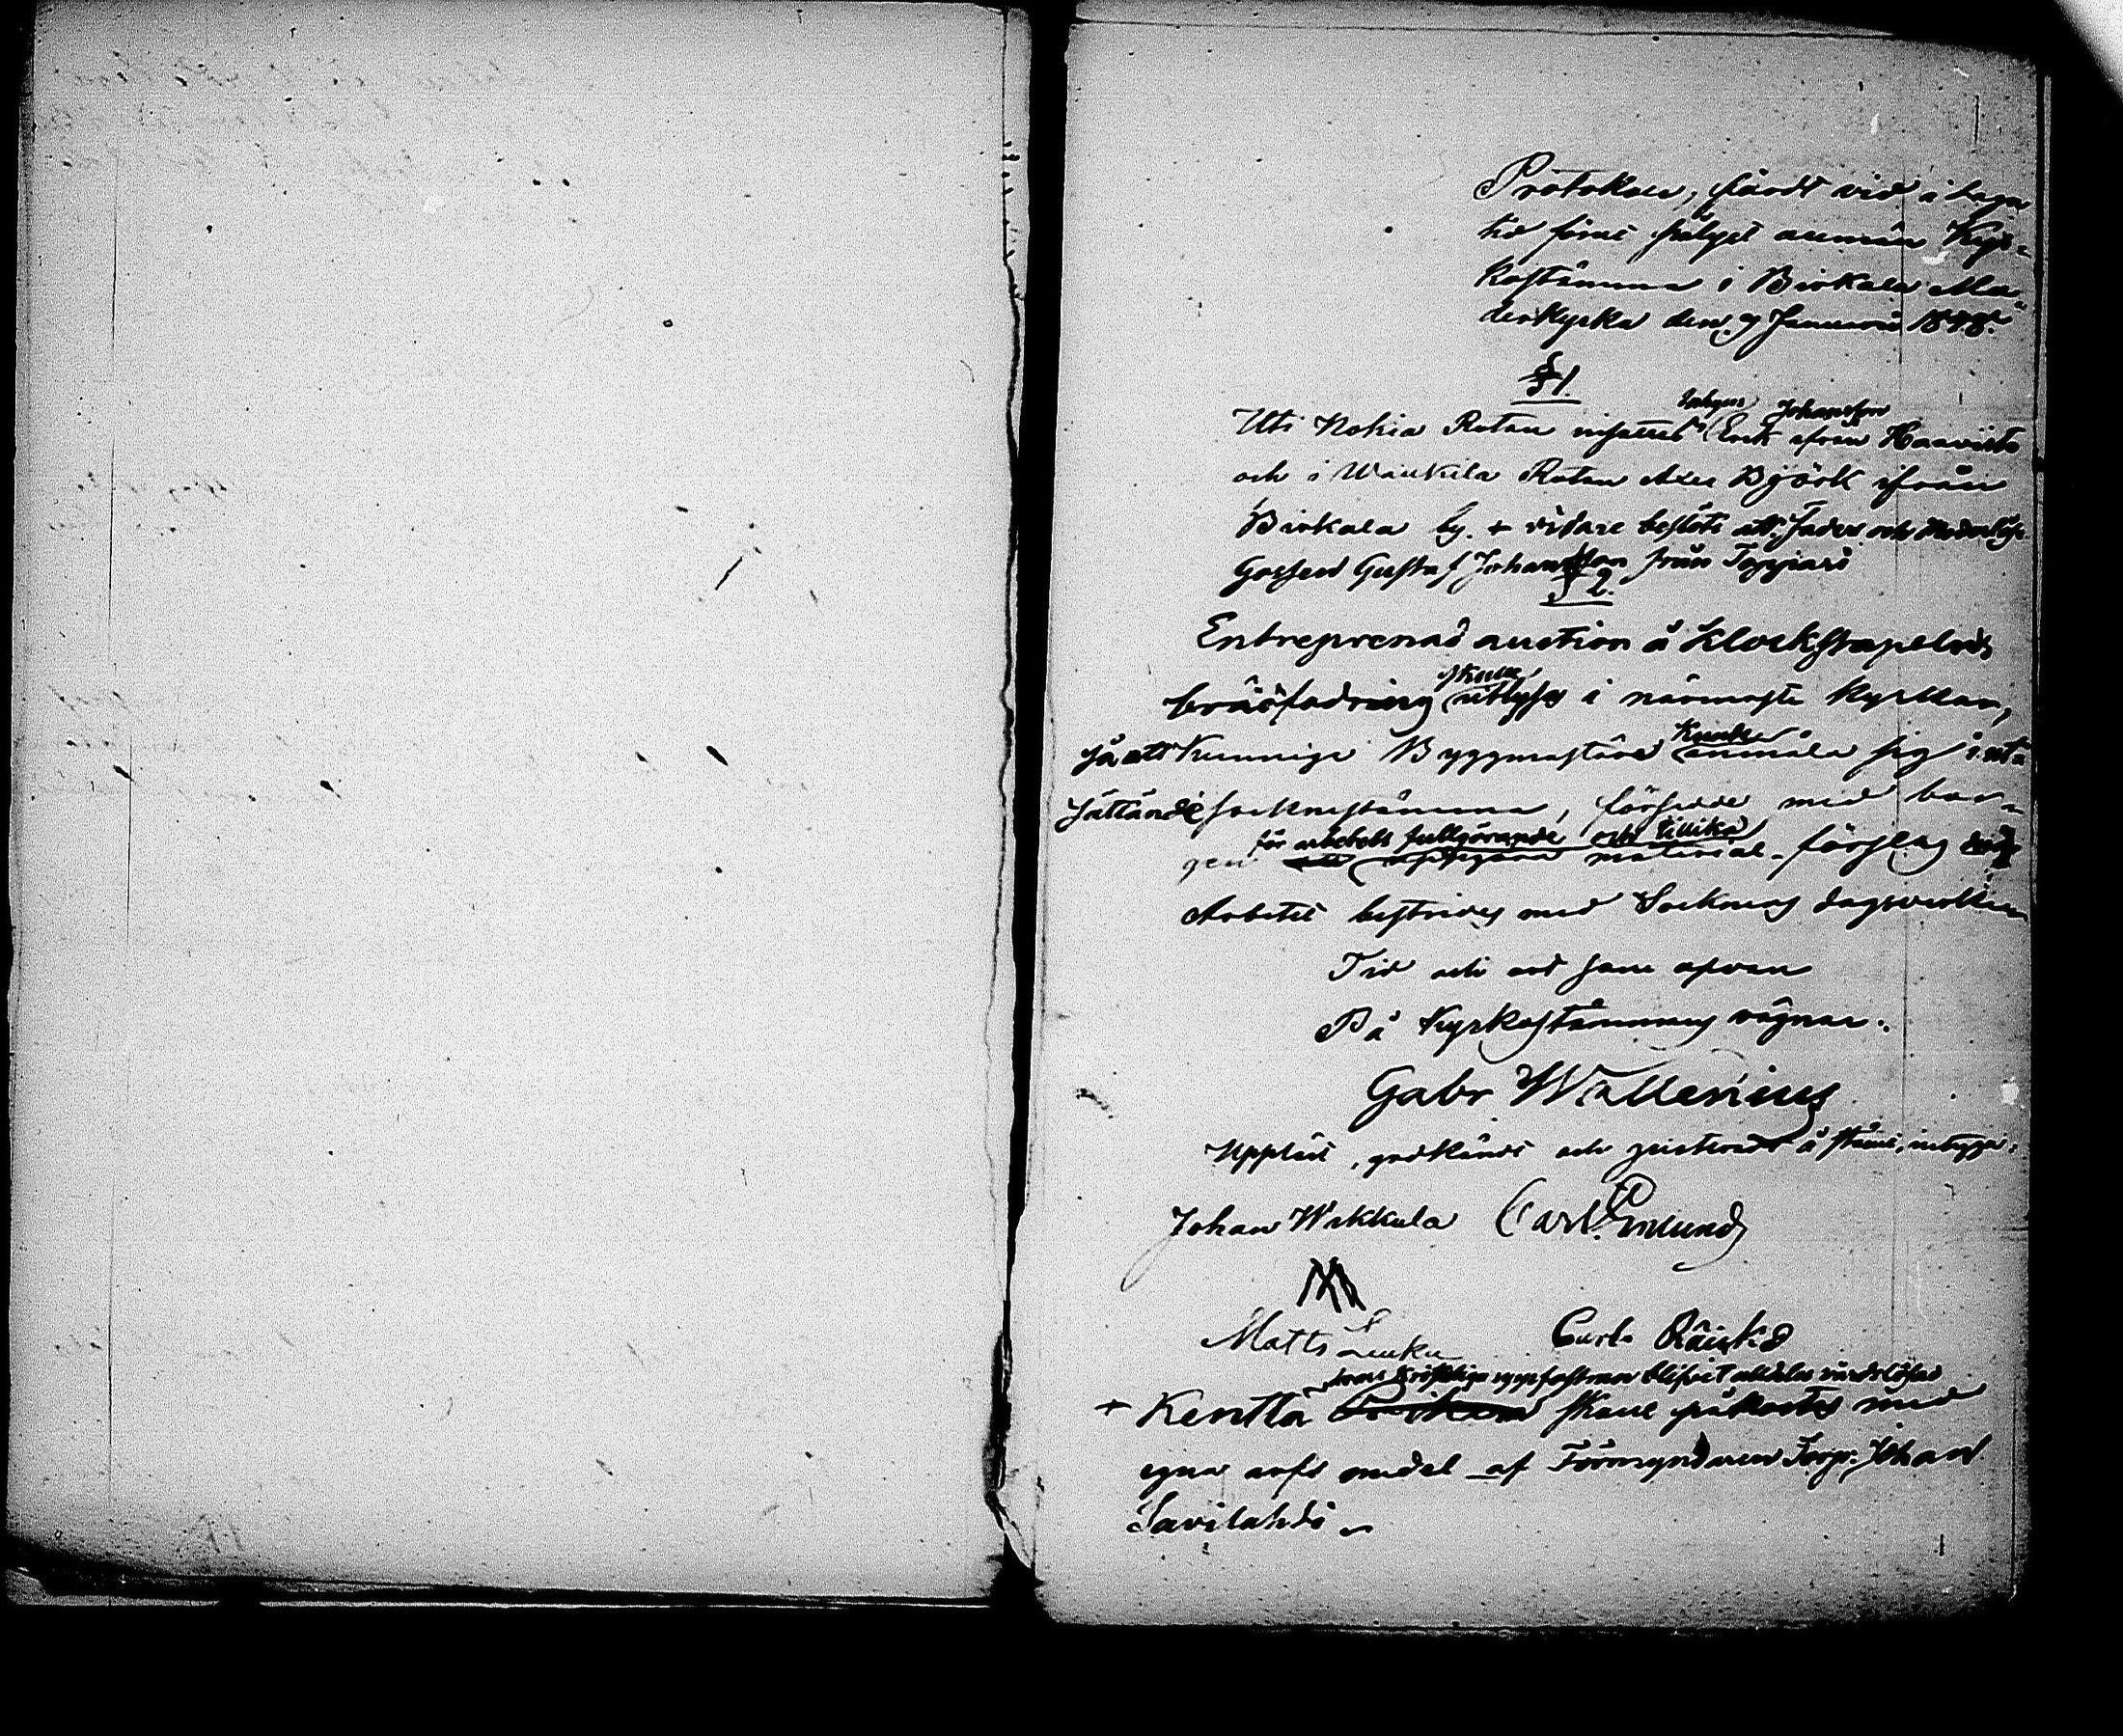 Protokoll, fördt vid i laga
tid förut pålyst allmän Kyr-
kostämma i Birkala Mo-
derkyrka den 9 Januarii 1848.
§ 1.
Uti Nokia Rotan Erik Johansson ifrån Haavisto
och i Wäukila Rotan Björk ifrån
Birkala by. + vidare beslöts att Fader och Moderlöse
Gossen Gustaf Johansson från Toppari
§ 2.
Entreprenad auction å Klockstapelns
brädfodring skulle utlysas i närmaste kyrkor,
så att Kunnige Byggmästare kunde anmäla sig i
sockenstämma, försedde med bor-
gen för arbetets fullgörande och tillika uppgöra material-förslag
Arbetet bestrides med Socknens dagsverken
Tid och ort som ofvan
På Kyrkostämmans vägnar:
Gabr Wallenius
Uppläst, godkändt och justeradt å stämman, intyga:
Johan Wakkula Carl Granlund
Matts Luuku Carl
hvars Kristliga uppfostran blifvit alldeles vårdslösad
+ Kenttä skall påkostas med
egna arfs medel af Förmyndaren Torp: Johan
Savilahti